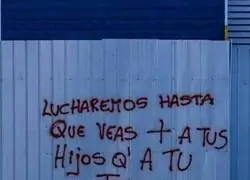 LUCHAREMOS HASTA
QUE VEAS + A TUS
HIJOS Q' A TU